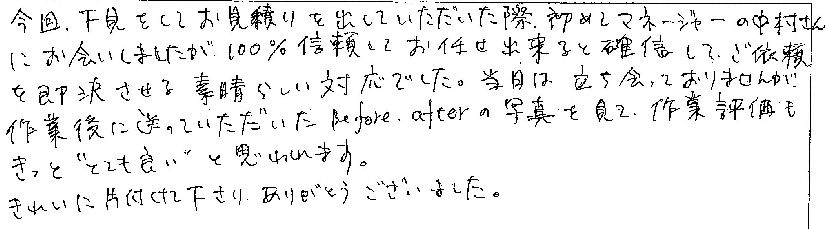 今回、下見をしてお見積りを出していただいた際、初めてマネージャーの中村さん
にお会いしましたが、100%信頼してお任せ出来ると確信して、ご依頼
を即決させる素晴らしい対応でした。当日は立ち会っておりませんが
作業後に送っていただいたBefore.afterの写真を見て、作業評価も
きっと"とても良い"と思われます。
きれいに片付けて下さり、ありがとうございました。